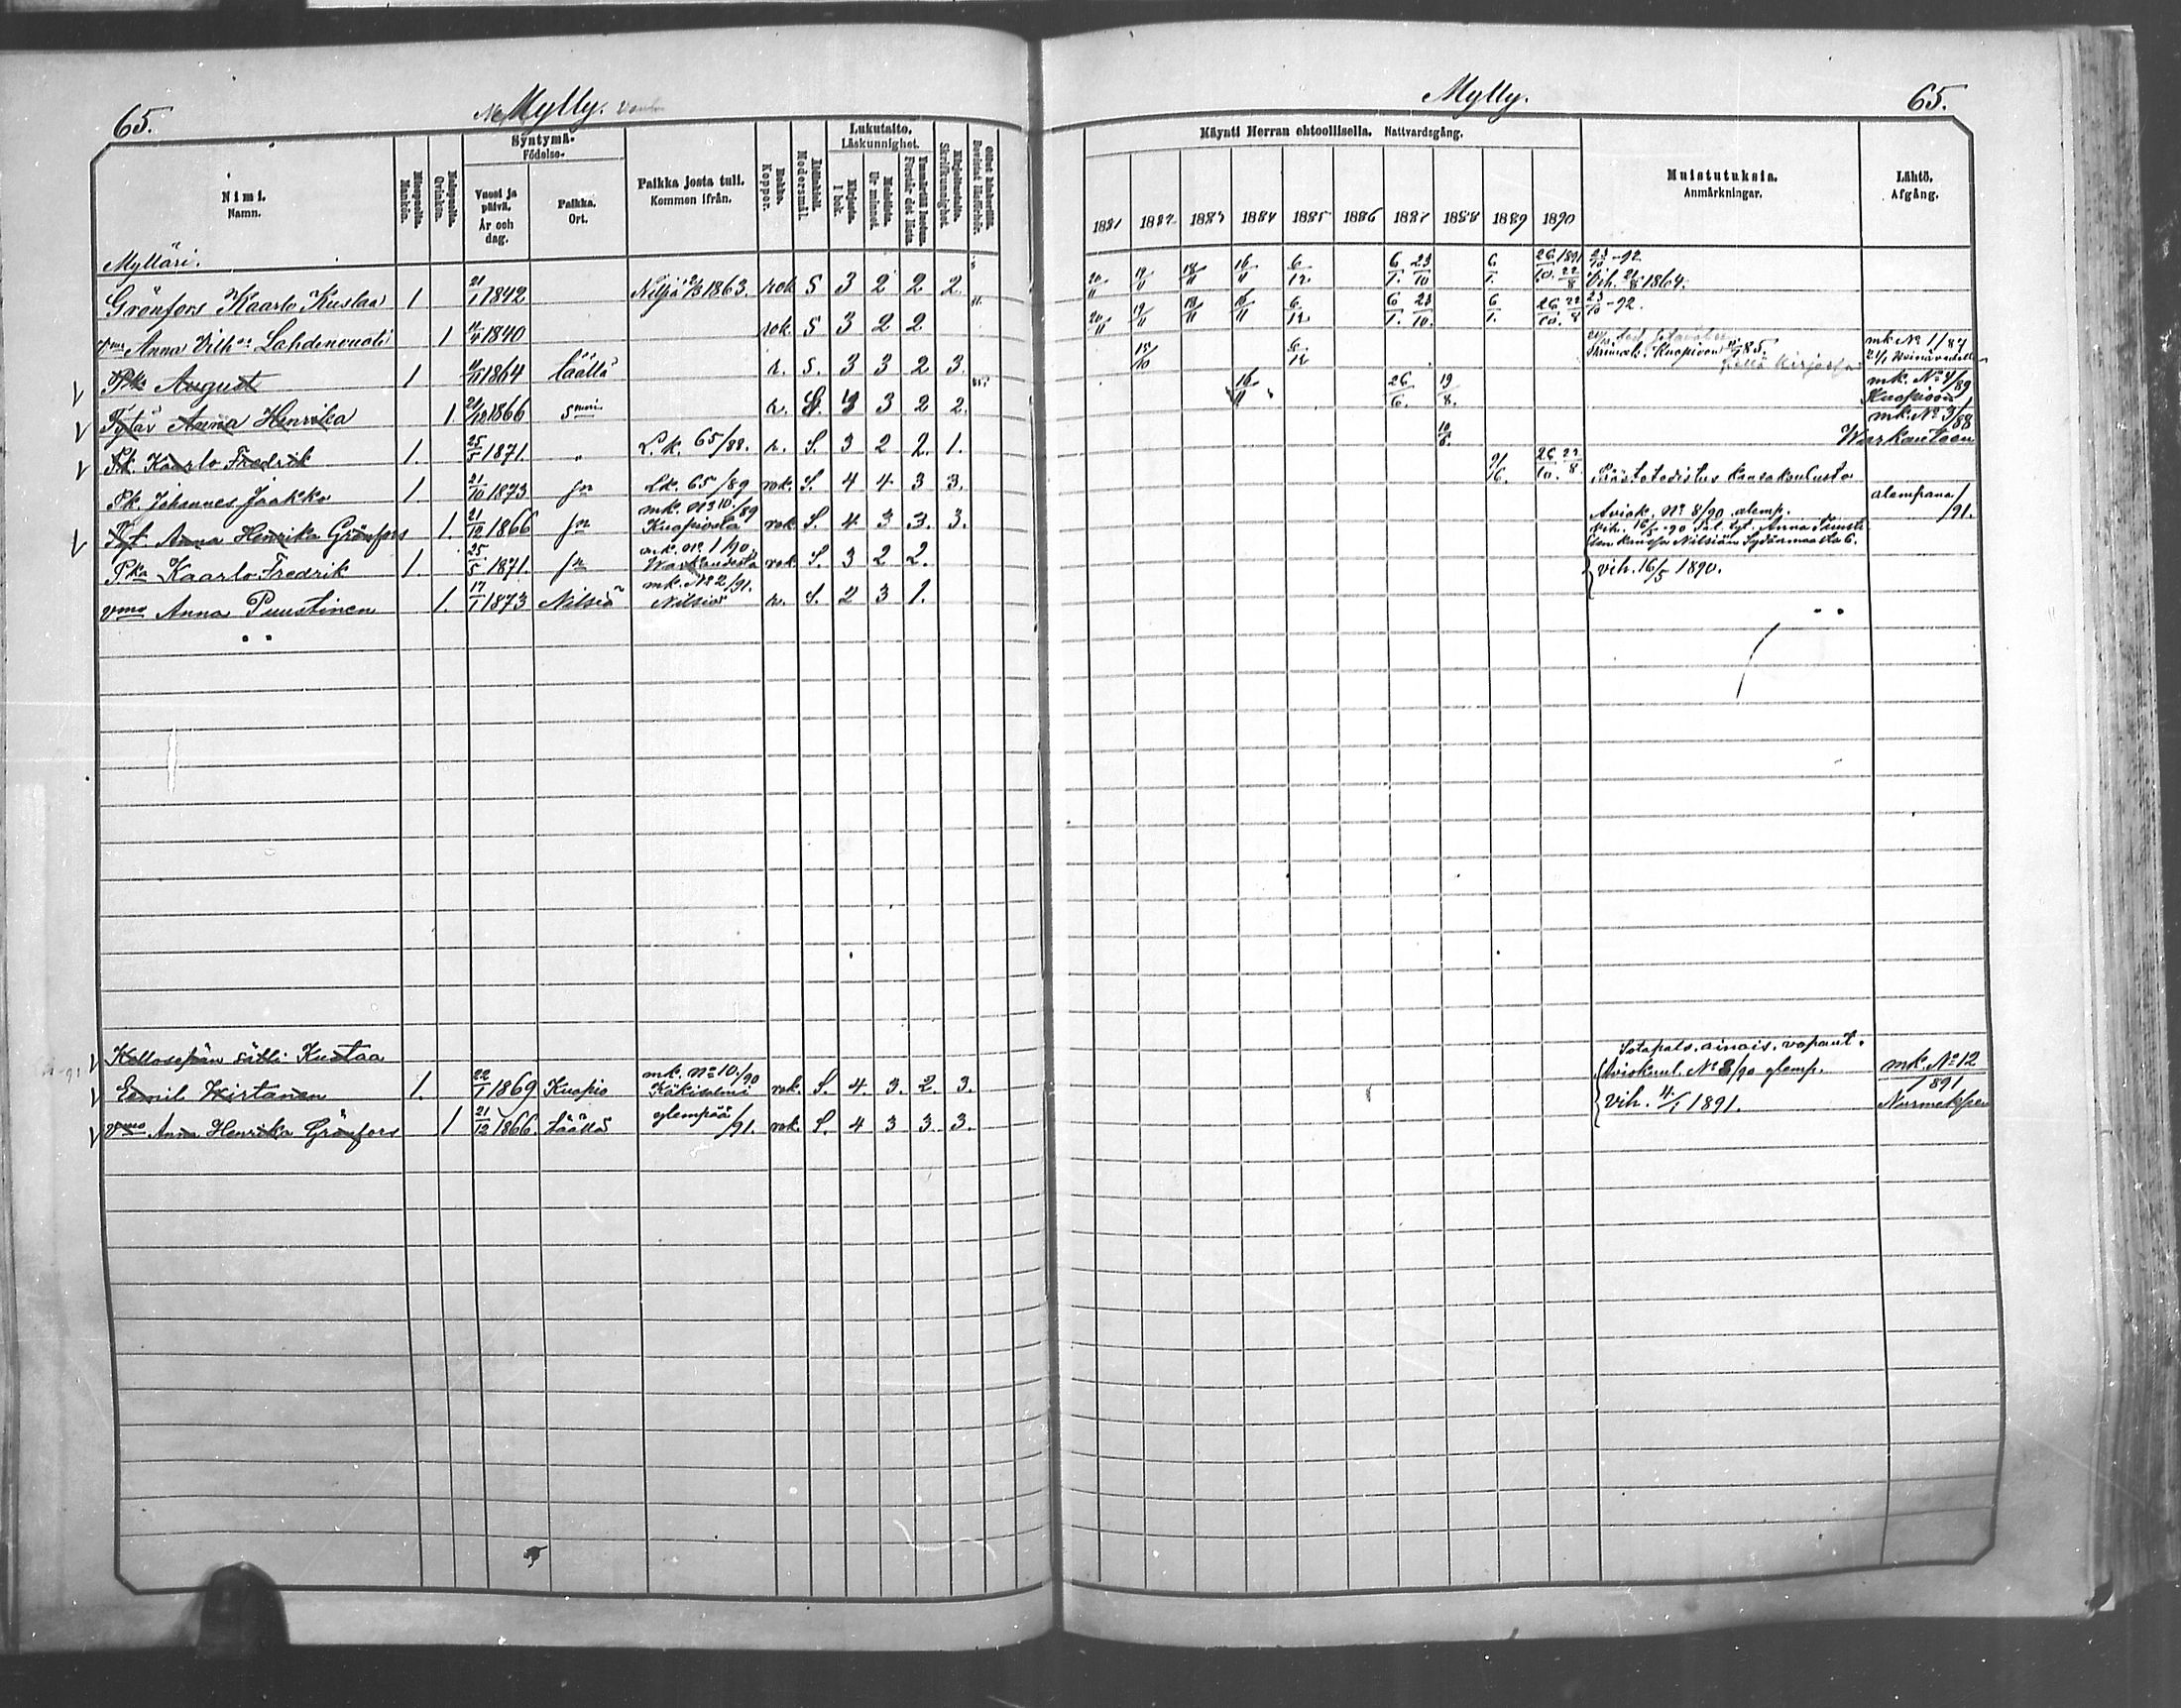 65.
Mylly.
Nimi.
Namn.
Miespuolia.
Mankön.
Naispuolia.
Qvinkön.
Syntymä-
Födelse-
Vuosi ja päivä.
År och dag.
Paikka.
Ort.
Paikka josta tuli.
Kommen ifrån.
Rokko.
Koppor.
Äidinkieli.
Modersmål.
Lukutaito.
Läskunnighet.
Kirjasta.
I bok.
Muistista.
Ur minnet.
Ymmärtää luetun.
Förstår det lästa.
Kirjoitustaito.
Skrifkunnighet.
Mylläri.
Grönfors Kaarlo Kustaa 1 21/1 1842 1863. rok S 3 2 2 2
vmo Anna Lahdenvuoti 1 1840 rok S 3 2 2
Pka August 1 1864 täällä r. S. 3 3 2 3.
Tytär Anna Henrika 1 21/12 1866 r. S. 3 3 2 2.
Pk. Kaarlo Fredrik 1. 25/5 1871. „ L. k. 65/88. r. S. 3 2 2. 1.
Pk. Johannes Jaakko 1. 21/10 1873 Lk. 65/89 rok. S. 4 4. 3 3.
mk. No 310./89
Tyt. Anna Henrika Grönfors 1. 21/12 1866 Kuopiosta rok S. 4 3 3. 3.
mk. No 1/90.
Pka Kaarlo Fredrik 1. 25/5 1871. Warkaudesta rok. S. 3 2 2.
mk. No 2/91.
vmo Anna Puustinen 1. 17/1 1873 Nilsiä Nilsiä r. S. 2 3 1.
Kellosepän sälli Kustaa
mk. No 10./90
Eemil Wirtanen 1. 22/1 1869 Kuopio Käkisalmi rok. S. 4. 3. 2. 3.
ylempää
vmo Anna Henrika Grönfors 1 21/12 1866. täällä /91. rok. S. 4 3 3. 3.
Mylly.
65.
Käynti Herran ehtoollisella. Nattvardsgång.
Muistutuksia.
Anmärkningar.
Lähtö.
Afgång.
1881 1882 1883 1884 1885 1886 1887 1888 1889 1890
20/11 19/11 18/11 16/11 6/12 6/1. 23/10 6/1. 26/10. 1891 22/8 23/10 -92
Vih. 21/8 1864.
20/11 19/11 18/11 16/11 6/12 6/1. 23/10. 6/1. 26/10. 22/8 23/10 -92.
mk No 1/87
15/10 6/12 Kuopioon
mk. No 4/89
16/11 26/6. 19/8. Kuopioon
mk. No 3/88
10/6. Warkauteen
9/6. 26/10. 22/8. Päästötodistus kansakoulusta
alempana /91.
Aviok. No 8/90 alemp.
Vih. 16/5 1890.
Sotapalv. ainais. vapaut.
Aviokuul. No 8/90 ylemp. mk. No 12/1891
Vih. 4/1 1891. Nurmekseen